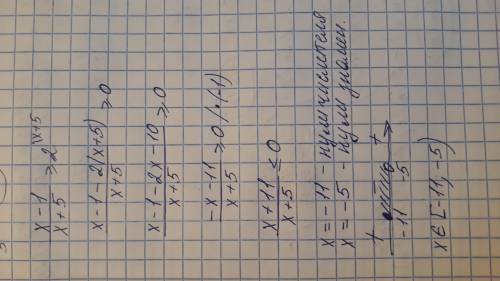 (x-1)/(x+5) ≥ 2 |x+5
(x-1-2(x+5))/(x+5) ≥ 0
(x-1-2x-10)/(x+5) ≥ 0
(-x-11)/(x+5) ≥ 0 /·(-1)
(x+11)/(x+5) ≤ 0
x = -11 - нули числителя
x = -5 - нули знамен.
+ - +
-11 -5
x ∈ [-11; -5)